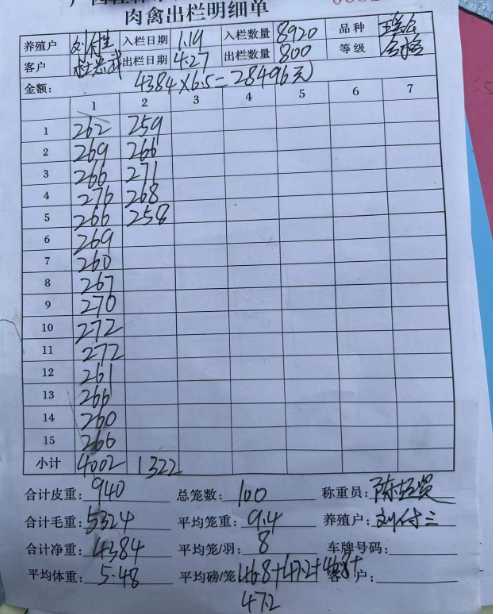 肉禽出栏明细单
养殖户 入栏日期 1.19 入栏数量 8920 品种
客户 出栏日期 4.27 出栏数量 800 等级
金额: 4384×6.5=28496元
1 2 3 4 5 6 7
1 262 259
2 269 266
3 266 271
4 276 268
5 266 258
6 269
7 260
8 267
9 270
10 272
11 272
12 261
13 266
14 260
15 266
小计 4002 1322
合计皮重: 940 总笼数: 100 称重员:
合计毛重: 5324 平均笼重: 9.4 养殖户: 刘付三
合计净重: 4384 平均笼/羽: 8 车牌号码:
平均体重: 5.48 平均磅/笼 468+472+468+ 客户:
472